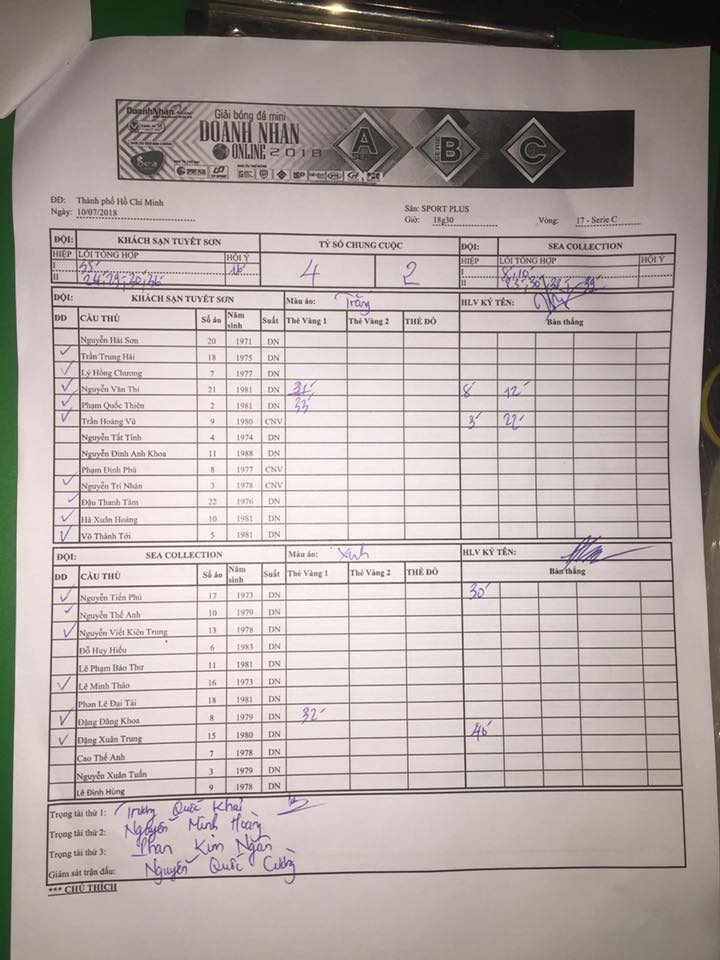 DoanhNhan
Giải bóng đá mini
DOANH NHAN
ONLINE 2018
A
SERIE
B
SERIE
C
SERIE
ĐĐ: Thành phố Hồ Chí Minh Sân: SPORT PLUS
Ngày: 10/07/2018 Giờ: 18g30 Vòng: 17 - Serie C
ĐỘI: KHÁCH SẠN TUYẾT SƠN TỶ SỐ CHUNG CUỘC ĐỘI: SEA COLLECTION
HIỆP LỖI TỔNG HỢP HỘI Ý 4 2 HIỆP LỖI TỔNG HỢP HỘI Ý
I I 8', 10'
II II
ĐỘI: KHÁCH SẠN TUYẾT SƠN Màu áo: Trắng HLV KÝ TÊN:
ĐD CẦU THỦ Số áo Năm sinh Suất Thẻ Vàng 1 Thẻ Vàng 2 THẺ ĐỎ Bàn thắng
Nguyễn Hải Sơn 20 1971 DN
Trần Trung Hải 18 1975 DN
Lý Hồng Chương 7 1977 DN
Nguyễn Văn Thi 21 1981 DN 31' 8' 12'
Phạm Quốc Thiên 2 1981 DN 33'
Trần Hoàng Vũ 9 1980 CNV 3' 22'
Nguyễn Tất Tính 4 1974 DN
Nguyễn Đình Anh Khoa 11 1988 DN
Phạm Đình Phú 8 1977 CNV
Nguyễn Trí Nhân 3 1978 CNV
Đậu Thanh Tâm 22 1976 DN
Hà Xuân Hoàng 10 1981 DN
Võ Thành Tới 5 1981 DN
ĐỘI: SEA COLLECTION Màu áo: Xanh HLV KÝ TÊN:
ĐD CẦU THỦ Số áo Năm sinh Suất Thẻ Vàng 1 Thẻ Vàng 2 THẺ ĐỎ Bàn thắng
Nguyễn Tiến Phú 17 1973 DN 30'
Nguyễn Thế Anh 10 1979 DN
Nguyễn Viết Kiên Trung 13 1978 DN
Đỗ Huy Hiếu 6 1983 DN
Lê Phạm Bảo Thư 11 1981 DN
Lê Minh Thảo 16 1973 DN
Phan Lê Đại Tài 18 1981 DN
Đặng Đăng Khoa 8 1979 DN 32'
Đặng Xuân Trung 15 1980 DN 40'
Cao Thế Anh 7 1978 DN
Nguyễn Xuân Tuấn 3 1979 DN
Lê Đình Hùng 9 1978 DN
Trọng tài thứ 1: Trương Quốc Khải
Trọng tài thứ 2: Nguyễn Minh Hoàng
Trọng tài thứ 3: Phan Kim Ngân
Giám sát trận đấu: Nguyễn Quốc Cường
*** CHÚ THÍCH